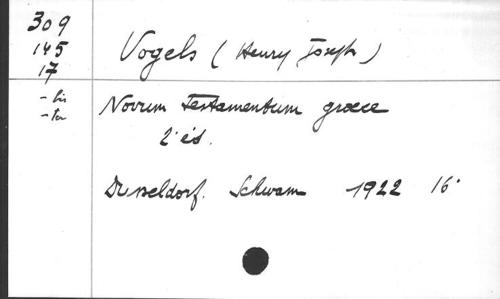 309
145
17
- bis
- ter
Vogels (Henry Joseph)
Novum Testamentum graece
2ᵉ éd.
Dusseldorf. Schwann 1922 16°